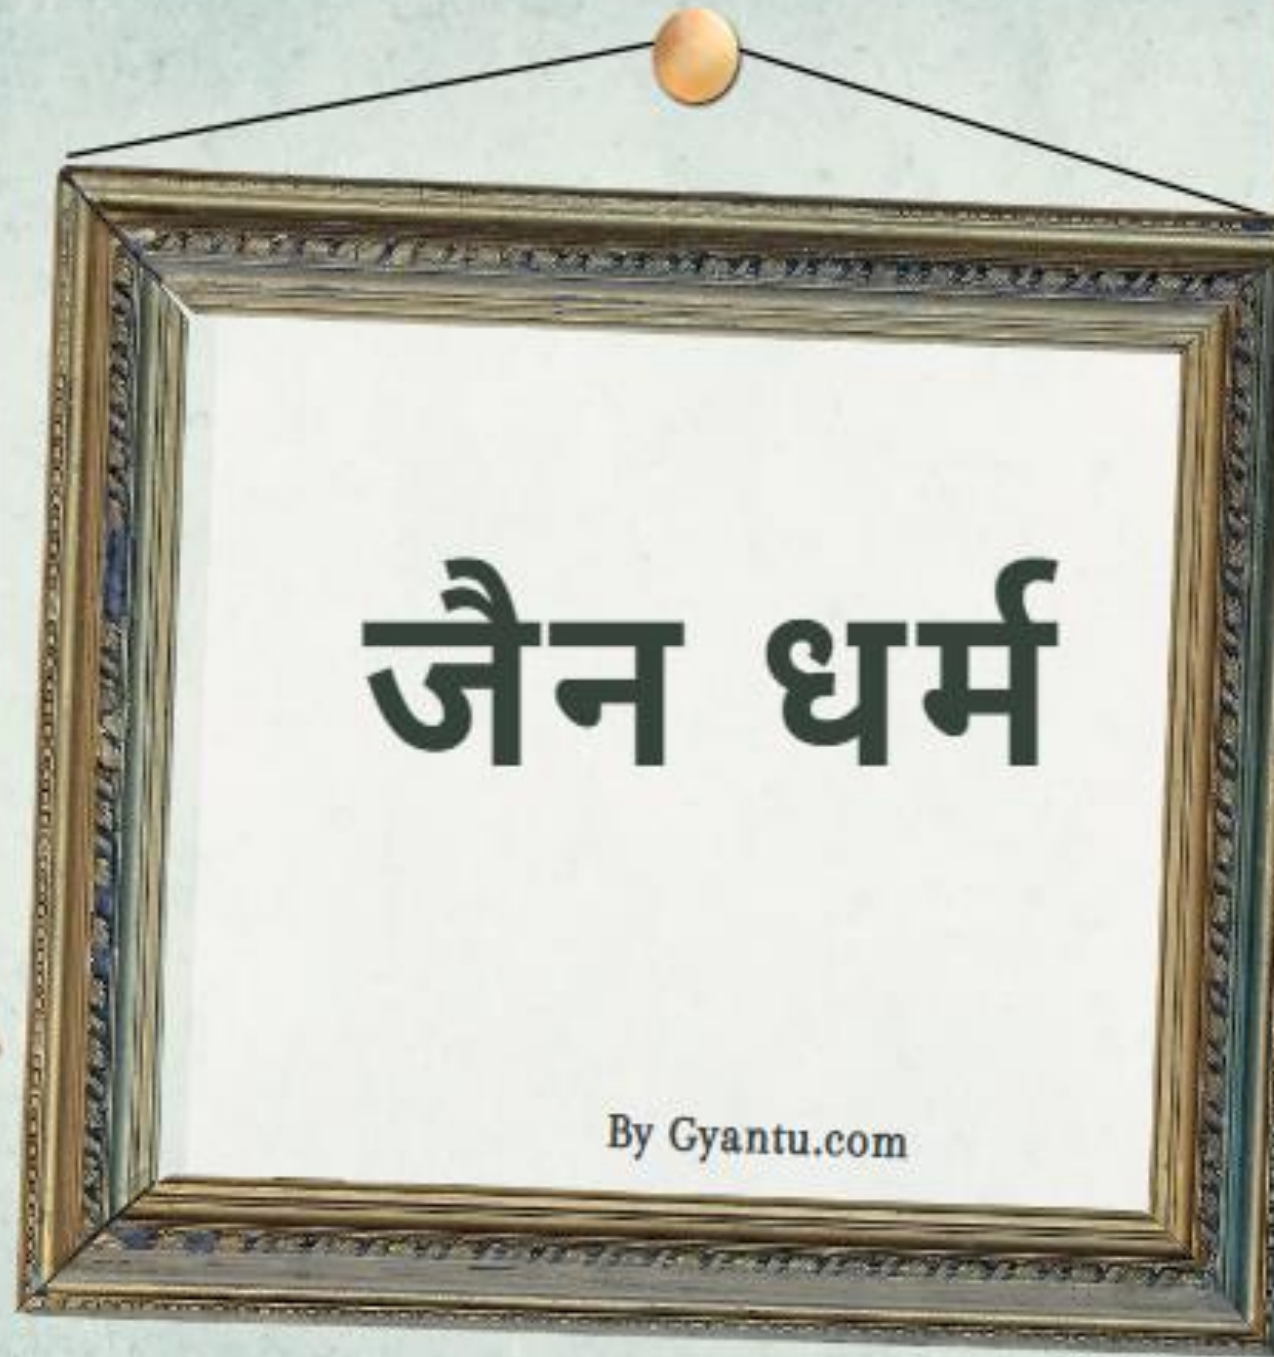 जैन धर्म
By Gyantu.com